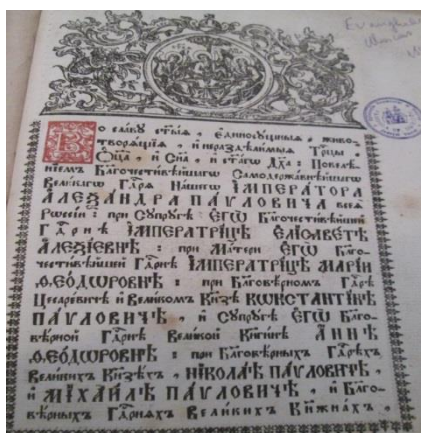 Во славу ст҃ыѧ, єдиносꙋщныѧ, живо-
творѧщїѧ, и нераздѣлимыѧ Трⷪ҇цы,
Ѻ҆ц҃а, и҆ Сн҃а, и҆ ст҃агѡ Дх҃а: Повелѣ-
нїемъ Благочестивѣйшагѡ Самодержавнѣйшагѡ
Великагѡ Гдⷭ҇рѧ Нашегѡ ІМПЕРАТОРА
АЛЕѮАНДРА ПАѴЛОВИЧА всеѧ
Рѡссїи: при Сꙋпрꙋгѣ ЄГѠ Благочестивѣйшей
Гдⷭ҇рнѣ ІМПЕРАТРИЦѢ ЄЛІСАВЕТѢ
АЛЕѮІЕВНѢ: при Матери ЄГѠ Благо-
честивѣйшей Гдⷭ҇рнѣ ІМПЕРАТРИЦѢ МАРІИ
ѲЕѠДѠРОВНѢ: при Благовѣрномъ Гдⷭ҇рѣ
Цесаревичѣ и Великомъ Кнѕѣ КѠНСТАНТІНѢ
ПАѴЛОВИЧѢ, и Сꙋпрꙋгѣ ЄГѠ Благо-
вѣрной Гдⷭ҇рнѣ Великой Кнгинѣ АННѢ
ѲЕѠДѠРОВНѢ: при Благовѣрныхъ Гдⷭ҇рѣхъ
Великихъ Кнѕехъ, НІКОЛАѢ ПАѴЛОВИЧѢ,
и МІХАИЛѢ ПАѴЛОВИЧѢ, и Благо-
вѣрныхъ Гдⷭ҇рнѧхъ Великихъ Кнѧжнахъ,